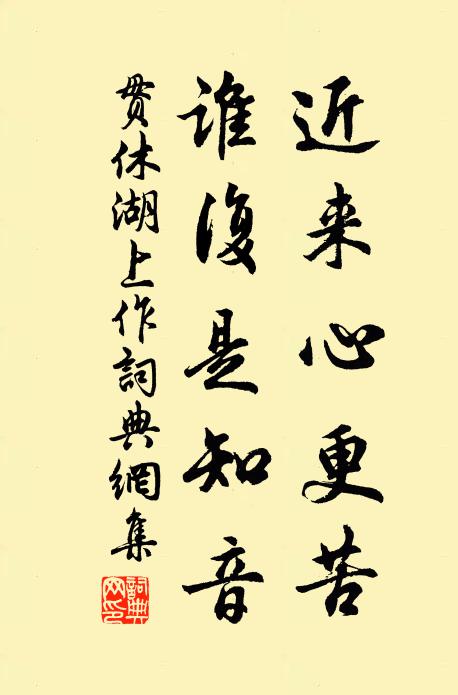 近来心更苦
谁復是知音
贯休湖上作詞典網集
詞典網印